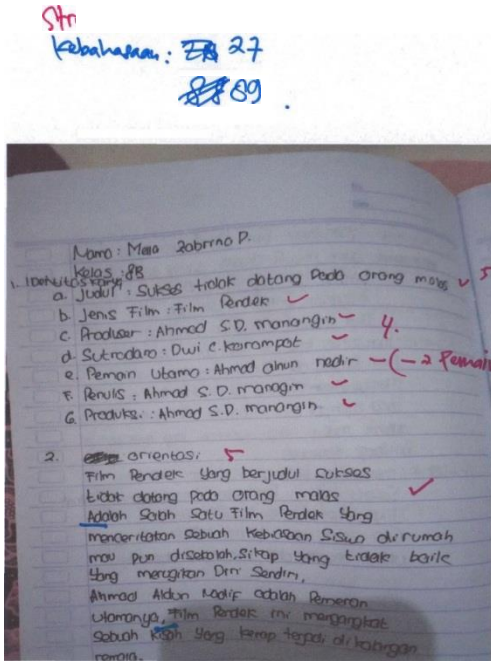 Str
Kebahasaan : 27
89 .
Nama : Maia Zabrina P.
Kelas : 8B
1. Identitas karya
a. Judul : Sukses tidak datang Pada orang malas 5
b. Jenis Film : Film Pendek
c. Produser : Ahmad S.D. manangin 4.
d. Sutradara : Dwi C. Karompot
e. Pemain Utama : Ahmad alnun nadir - (-2 Pemain
F. Penulis : Ahmad S.D. manangin
G. Produksi : Ahmad S.D. manangin
2. orientasi 5
Film Pendek Yang berjudul Sukses
tidak datang Pada orang malas
Adalah Salah Satu Film Pendek Yang
menceritakan Sebuah Kebiasaan Siswa dirumah
mau pun disekolah, Sikap Yang tidak baik
Yang merugikan Diri Sendiri,
Ahmad Aldun Nadif adalah Pemeran
Utamanya, Film Pendek ini mengangkat
Sebuah Kisah Yang kerap terjadi di kalangan
remaja.